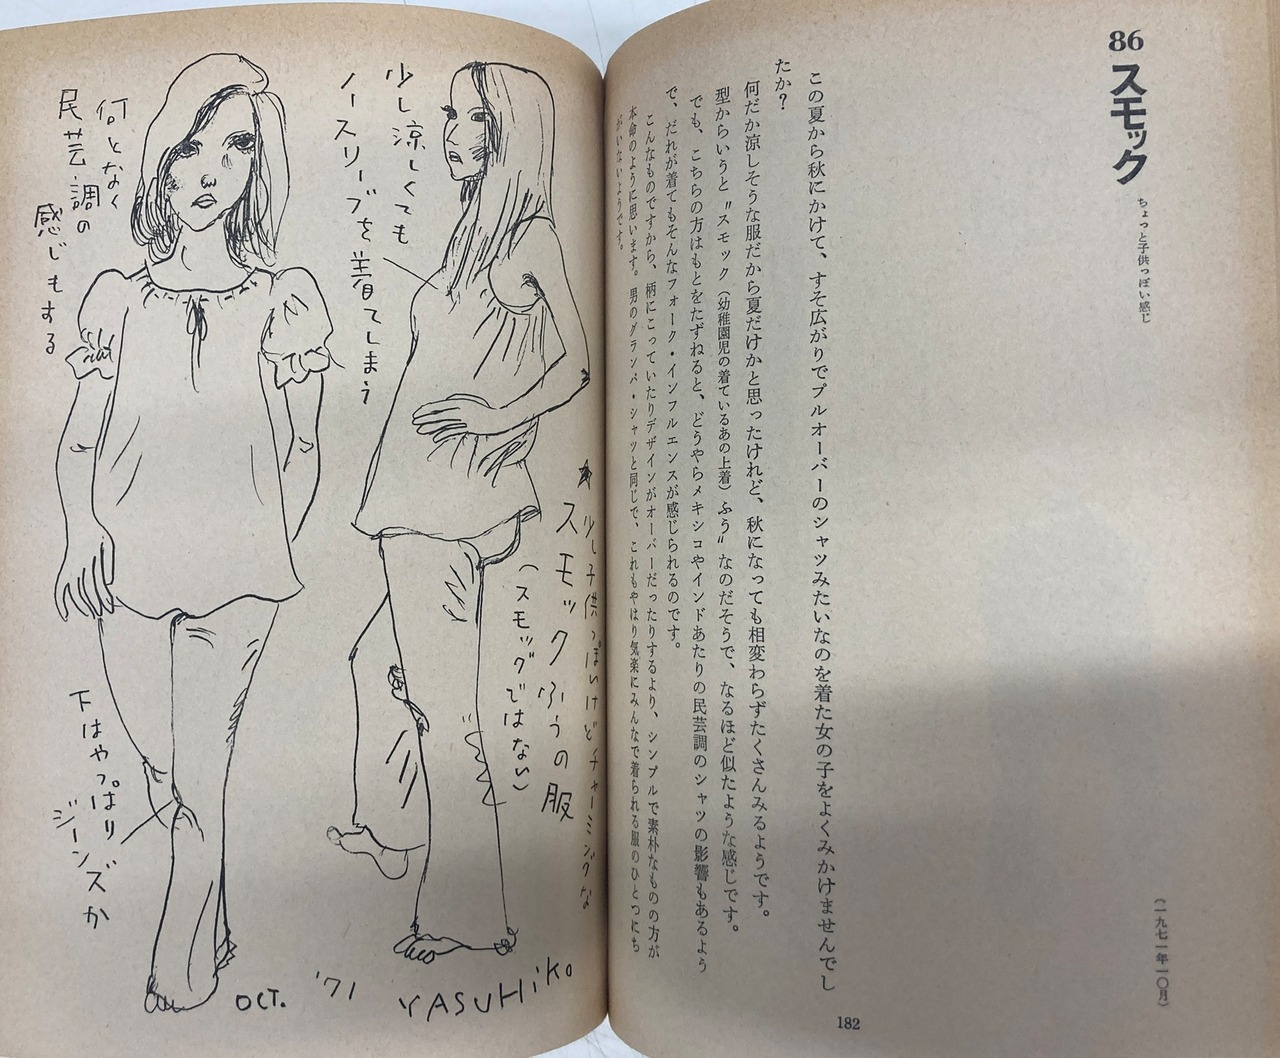 86 スモック
ちょっと子供っぽい感じ
(一九七一年一〇月)
この夏から秋にかけて、すそ広がりでプルオーバーのシャツみたいなのを着た女の子をよくみかけませんでし
たか?
何だか涼しそうな服だから夏だけかと思ったけれど、秋になっても相変わらずたくさんみるようです。
型からいうと〝スモック(幼稚園児の着ているあの上着)ふう〟なのだそうで、なるほど似たような感じです。
でも、こちらの方はもとをたずねると、どうやらメキシコやインドあたりの民芸調のシャツの影響もあるよう
で、だれが着てもそんなフォーク・インフルエンスが感じられるのです。
こんなものですから、柄にこっていたりデザインがオーバーだったりするより、シンプルで素朴なものの方が
本命のように思います。男のグランパ・シャツと同じで、これもやはり気楽にみんなで着られる服のひとつにち
がいないようです。
182
★少し子供っぽいけどチャーミングな
スモックふうの服
(スモッグではない)
少し涼しくても
ノースリーブを着てしまう
何となく
民芸調の
感じもする
下はやっぱり
ジーンズか
OCT. '71 YASUHIKO